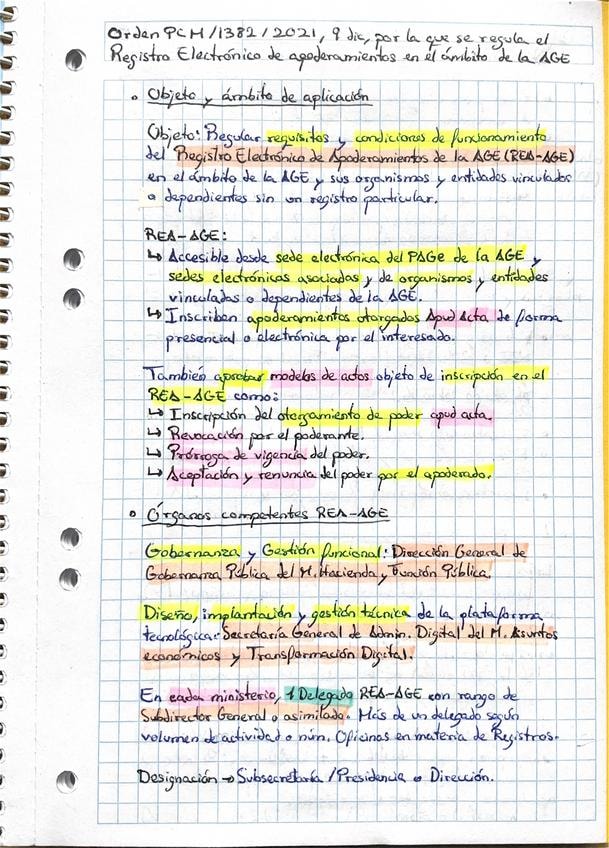 Orden PCM/1382/2021, 9 dic, por la que se regula el
Registro Electrónico de apoderamientos en el ámbito de la AGE
• Objeto y ámbito de aplicación
Objeto: Regular requisitos y condiciones de funcionamiento
del Registro Electrónico de Apoderamientos de la AGE (REA-AGE)
en el ámbito de la AGE y sus organismos y entidades vinculados
o dependientes sin un registro particular.
REA-AGE:
↳ Accesible desde sede electrónica del PAGe de la AGE y
sedes electrónicas asociadas y de organismos y entidades
vinculadas o dependientes de la AGE.
↳ Inscriben apoderamientos otorgados Apud Acta de forma
presencial o electrónica por el interesado.
También aprobar modelos de actos objeto de inscripción en el
REA-AGE como:
↳ Inscripción del otorgamiento de poder apud acta.
↳ Revocación por el poderante.
↳ Prórroga de vigencia del poder.
↳ Aceptación y renuncia del poder por el apoderado.
• Órganos competentes REA-AGE
Gobernanza y Gestión funcional: Dirección General de
Gobernanza Pública del M. Hacienda y Función Pública.
Diseño, implantación y gestión técnica de la plataforma
tecnológica: Secretaría General de Admin. Digital del M. Asuntos
económicos y Transformación Digital.
En cada ministerio, 1 Delegado REA-AGE con rango de
Subdirector General o asimilado. Más de un delegado según
volumen de actividad o núm. Oficinas en materia de Registros.
Designación → Subsecretaría / Presidencia o Dirección.